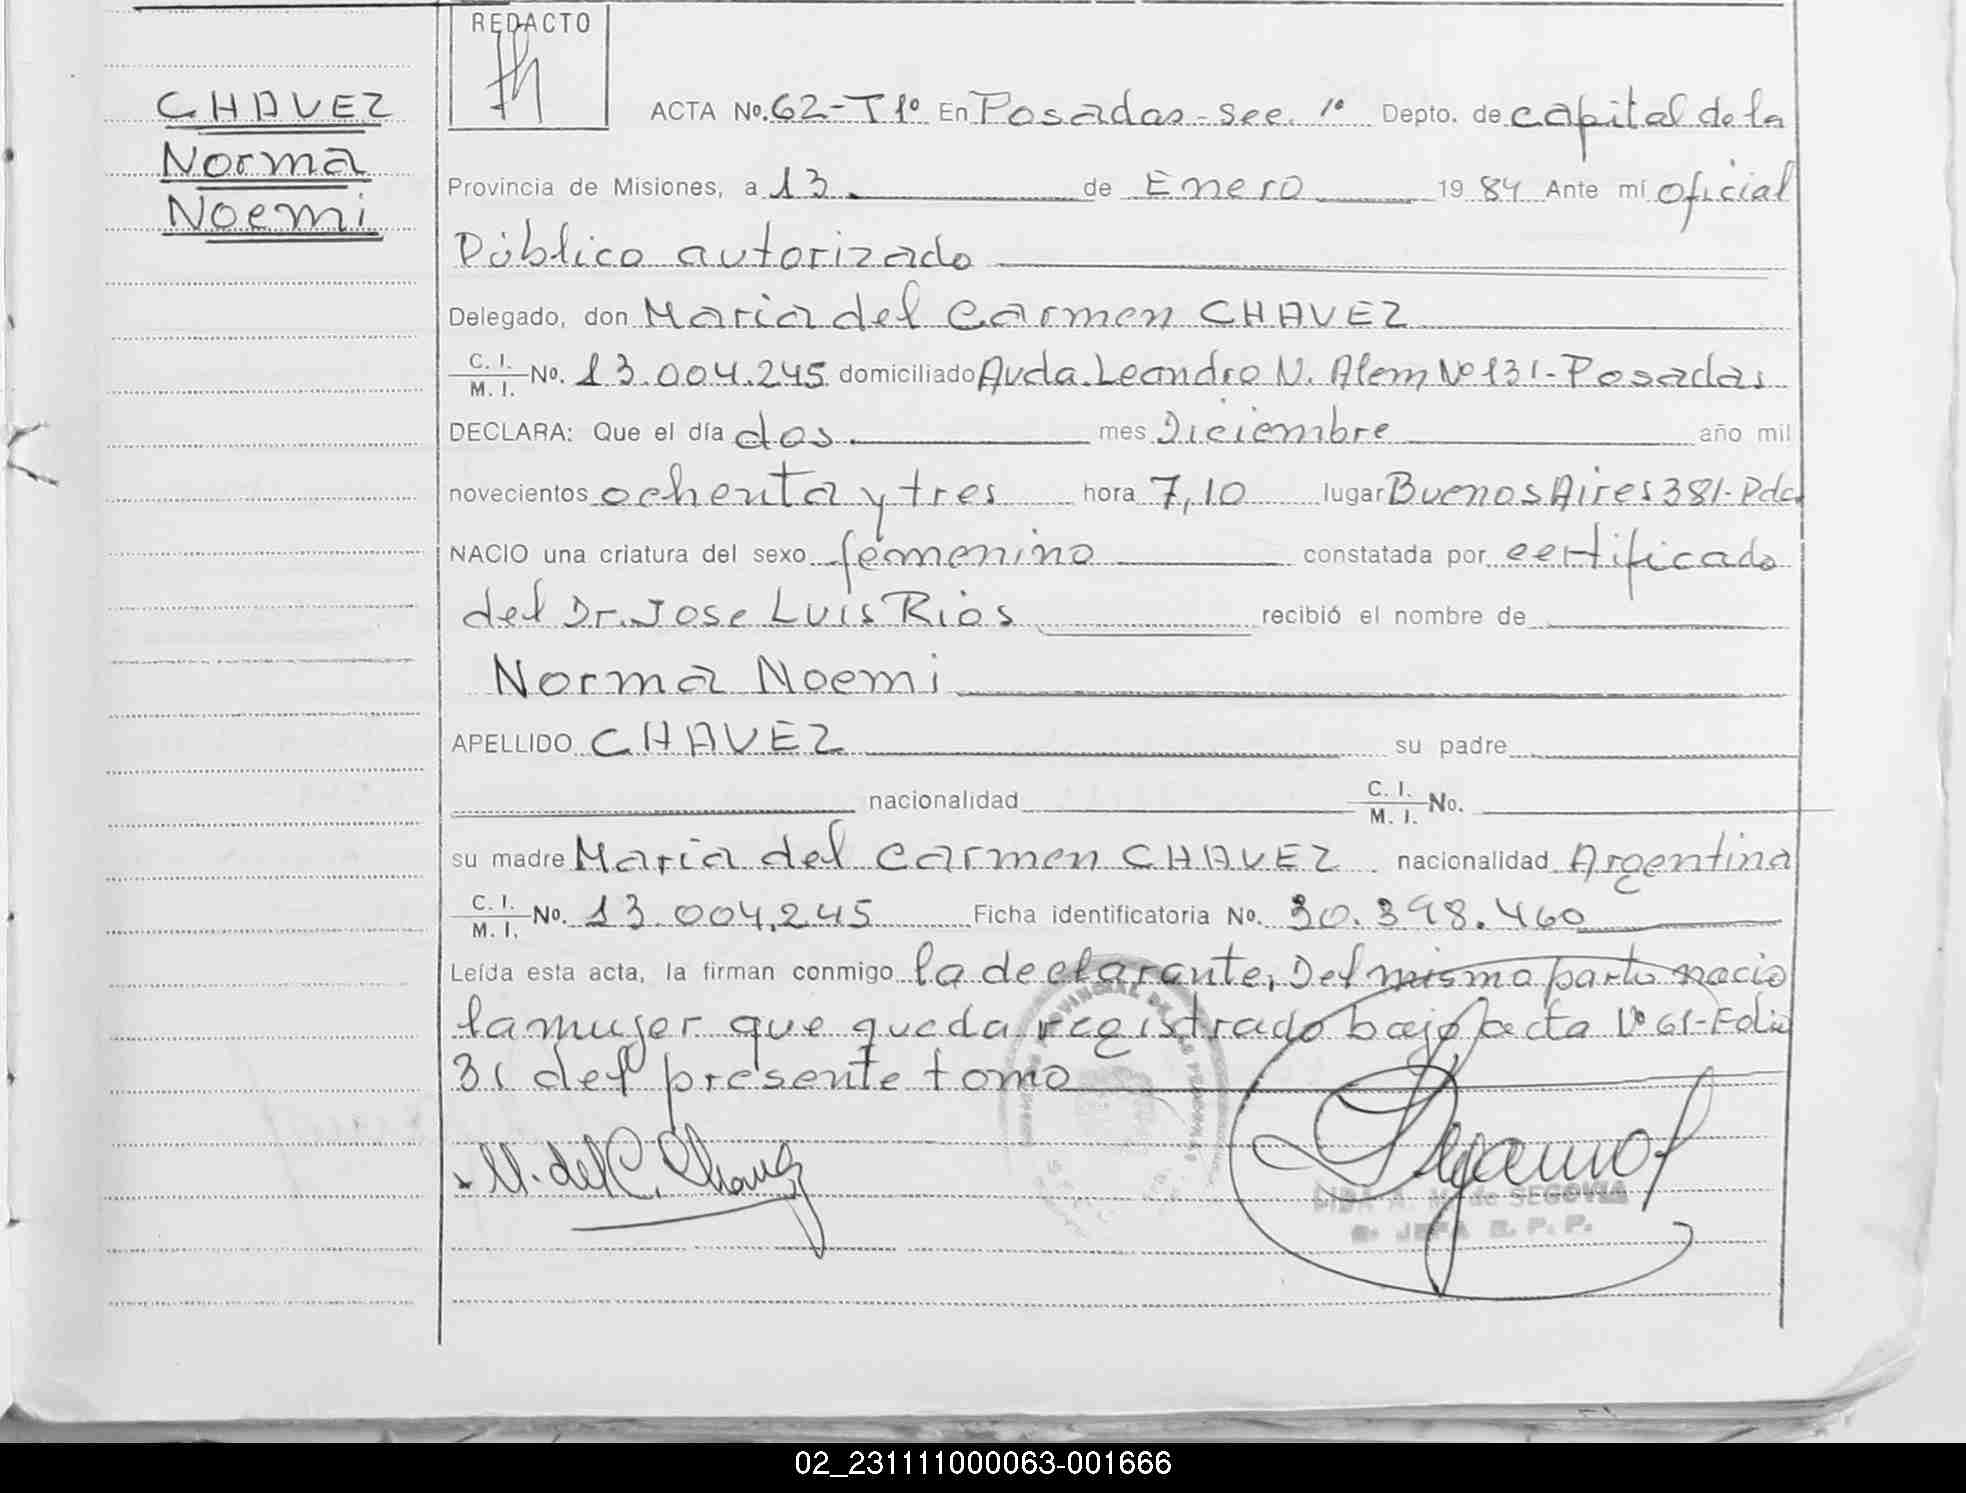 REDACTO
CHAVEZ
Norma
Noemi
ACTA No. 62-T1º En Posadas - Sec. 1º Depto. de capital de la
Provincia de Misiones, a 13. de Enero 1984 Ante mí oficial
Público autorizado
Delegado, don Maria del Carmen CHAVEZ
C. I. / M. I. No. 13.004.245 domiciliado Avda. Leandro N. Alem Nº 131-Posadas
DECLARA: Que el día dos. mes Diciembre año mil
novecientos ochenta y tres hora 7,10 lugar Buenos Aires 381-Pdas
NACIO una criatura del sexo femenino constatada por certificado
del Dr. Jose Luis Rios recibió el nombre de
Norma Noemi
APELLIDO CHAVEZ su padre
nacionalidad C. I. / M. I. No.
su madre Maria del Carmen CHAVEZ nacionalidad Argentina
C. I. / M. I. No. 13.004.245 Ficha identificatoria No. 30.398.460
Leída esta acta, la firman conmigo la declarante, Del mismo parto nacio
la mujer que queda registrado bajo acta Nº 61-Folio
31 del presente tomo
M. del C. Chavez
LIDA A. M. de SEGOVIA
JEFA R. P. P.
02_231111000063-001666